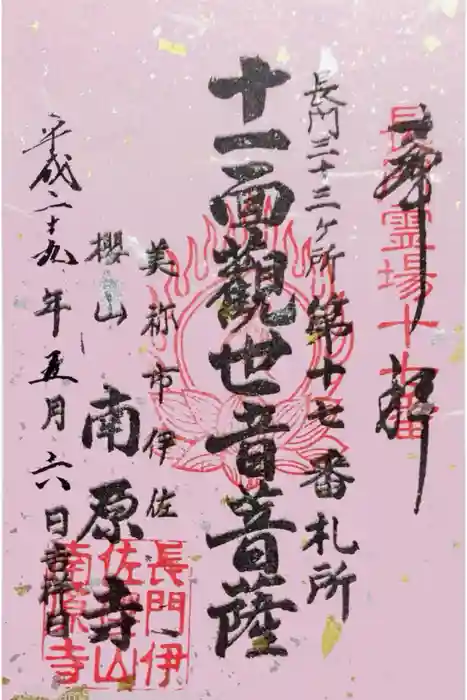 奉拝
長門霊場十七番
長門三十三ヶ所第十七番札所
十一面觀世音菩薩
美祢市伊佐
櫻山 南原寺
平成二十九年五月六日吉祥日
長門伊
佐櫻山
南原寺